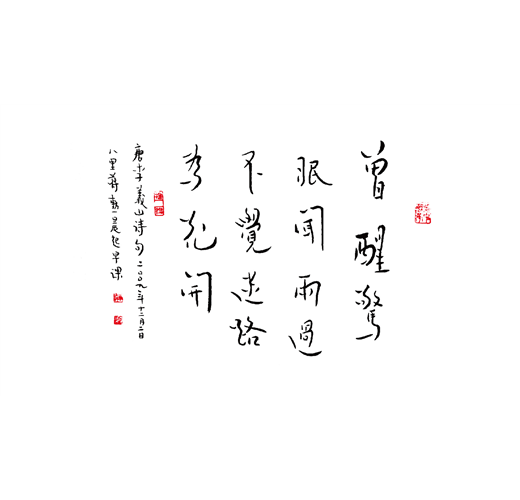 曾醒驚
眠聞雨過
不覺迷路
為花開
唐李義山诗句二〇〇九年十二月二日
八里蔣勳晨起早课